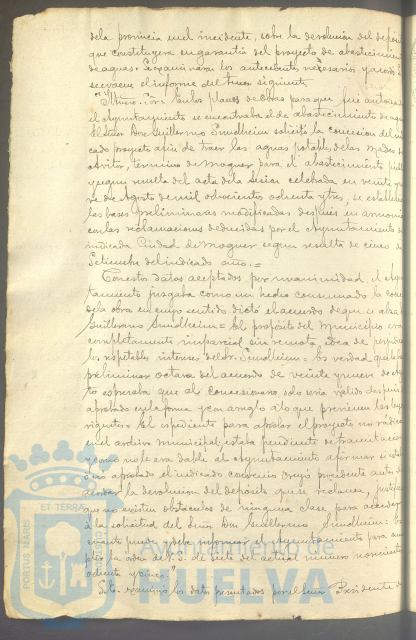 de la provincia en el incidente, sobre la devolución del depósito
que constituyera en garantía del proyecto de abastecimiento
de aguas. Se examinaron los antecedentes necesarios y acordó
se evacue el informe del tenor siguiente
Entre los planos de obras para que fue autorizado
el Ayuntamiento se encontraba el de abastecimiento de aguas
El Señor Don Guillermo Sundheim solicitó la concesión del indi-
cado proyecto a fin de traer las aguas potables de las Madres de
Avitor, término de Moguer para el abastecimiento público
y según resulta del acta de la sesión celebrada en veinte y nue-
ve de Agosto de mil ochocientos ochenta y tres, se establecieron
las bases preliminares modificadas después en armonía
con las reclamaciones deducidas por el Ayuntamiento de la
indicada Ciudad de Moguer según resulta de cinco de
Setiembre del indicado año.=
Con estos datos aceptados por unanimidad, el Ayun-
tamiento juzgaba como un hecho consumado la conce
de la obra en cuyo sentido dictó el acuerdo de que se
Guillermo Sundheim = El propósito del Municipio era
completamente imparcial sin remota idea de perjudicar
los respetables intereses del Sr. Sundheim = Es verdad que la
preliminar octava del acuerdo de veinte y nueve de Agos-
to expresaba que al concesionario sólo sería válido después
aprobado en la forma y con arreglo a lo que previenen las leyes
vigentes El expediente para aprobar el proyecto no radica
en el archivo municipal; estaba pendiente de tramitación
y como no le era dable al Ayuntamiento afirmar si estaba
no aprobado el indicado convenio creyó procedente antes de
acordar la devolución del depósito que se reclama, justificar
que no existían obstáculos de ninguna clase para acceder
á la solicitud del Señor Don Guillermo Sundheim = Es
cuanto puede y debe informar el Ayuntamiento para cum-
plir la orden de V.S. de siete del actual número novecientos
ochenta y cinco."
Se examinó los datos presentados por el Señor Presidente
PORTUS MARIS ET TERRAE
Ayuntamiento de
HUELVA